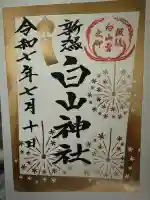 新潟
白山神社
令和七年七月十日